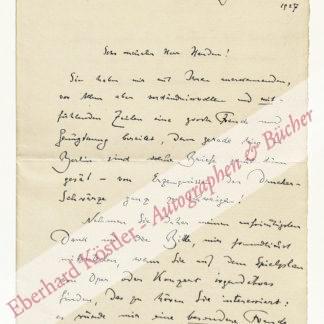 1927
Sehr verehrter Herr Henden!
Sie haben mir mit Ihren anerkennenden,
vor Allem aber verständnisvollen und mit-
fühlenden Zeilen eine große Freude und
Genugtuung bereitet, denn gerade hier
Berlin sind solche Briefe
gesät – von Erzeugnissen der Drucker-
Schwärze ganz zu schweigen!
Nehmen Sie daher meinen aufrichtigsten
Dank mit der Bitte, mir freundlichst
mitzuteilen, wenn Sie auf dem Spielplan
von Oper oder Konzert irgendetwas
finden, das zu hören Sie interessiert:
es würde mir eine besondere Freude
Eberhard Köstler - Autographen & Bücher